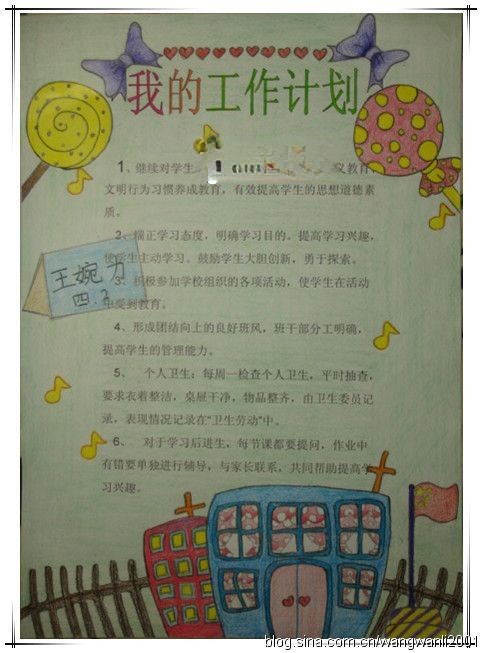 我的工作计划
1、继续对学生
义教育
文明行为习惯养成教育，有效提高学生的思想道德素
质。
2、端正学习态度，明确学习目的。提高学习兴趣，
使学生主动学习。鼓励学生大胆创新，勇于探索。
3、积极参加学校组织的各项活动，使学生在活动
中受到教育。
王婉力
四.2
4、形成团结向上的良好班风，班干部分工明确，
提高学生的管理能力。
5、 个人卫生：每周一检查个人卫生，平时抽查，
要求衣着整洁，桌屉干净，物品整齐，由卫生委员记
录，表现情况记录在“卫生劳动”中。
6、 对于学习后进生，每节课都要提问，作业中
有错要单独进行辅导，与家长联系，共同帮助提高学
习兴趣。
blog.sina.com.cn/wangwanli2001